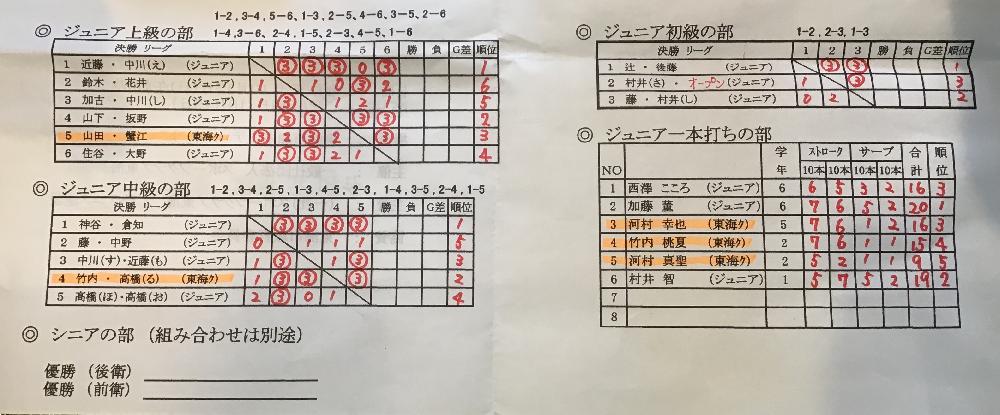 1-2, 3-4, 5-6、1-3, 2-5, 4-6, 3-5, 2-6
◎ ジュニア上級の部 1-4, 3-6、2-4, 1-5, 2-3, 4-5, 1-6
決勝 リーグ 1 2 3 4 5 6 勝 負 G差 順位
1 近藤・中川(え) (ジュニア) ③ ③ ③ 0 ③ 1
2 鈴木・花井 (ジュニア) 1 1 0 ③ 2 6
3 加古・中川(し) (ジュニア) 1 ③ 1 2 1 5
4 山下・坂野 (ジュニア) 1 ③ ③ ③ ③ 2
5 山田・蟹江 (東海ク) ③ 2 ③ 2 ③ 3
6 住谷・大野 (ジュニア) 1 ③ ③ 2 1 4
◎ ジュニア中級の部 1-2, 3-4, 2-5, 1-3, 4-5, 2-3, 1-4, 3-5, 2-4, 1-5
決勝 リーグ 1 2 3 4 5 勝 負 G差 順位
1 神谷・倉知 (ジュニア) ③ ③ ③ ③ 1
2 藤・中野 (ジュニア) 0 1 1 1 5
3 中川(す)・近藤(も) (ジュニア) 1 ③ 1 ③ 3
4 竹内・高橋(る) (東海ク) 1 ③ ③ ③ 2
5 高橋(ほ)・高橋(お) (ジュニア) 2 ③ 0 1 4
◎ シニアの部 (組み合わせは別途)
優勝 (後衛)
優勝 (前衛)
◎ ジュニア初級の部 1-2, 2-3, 1-3
決勝 リーグ 1 2 3 勝 負 G差 順位
1 辻・後藤 (ジュニア) ③ ③ 1
2 村井(さ)・オープン (ジュニア) 1 ③ 3
3 藤・村井(し) (ジュニア) 0 2 2
◎ ジュニア一本打ちの部
NO 学年 ストローク サーブ 合計 順位
10本 10本 10本 10本
1 西澤 こころ (ジュニア) 6 6 5 3 2 16 3
2 加藤 菫 (ジュニア) 6 7 6 5 2 20 1
3 河村 幸也 (東海ク) 5 7 6 1 2 16 3
4 竹内 桃夏 (東海ク) 2 7 6 1 1 15 4
5 河村 真聖 (東海ク) 2 5 2 1 1 9 5
6 村井 智 (ジュニア) 1 5 7 5 2 19 2
7
8